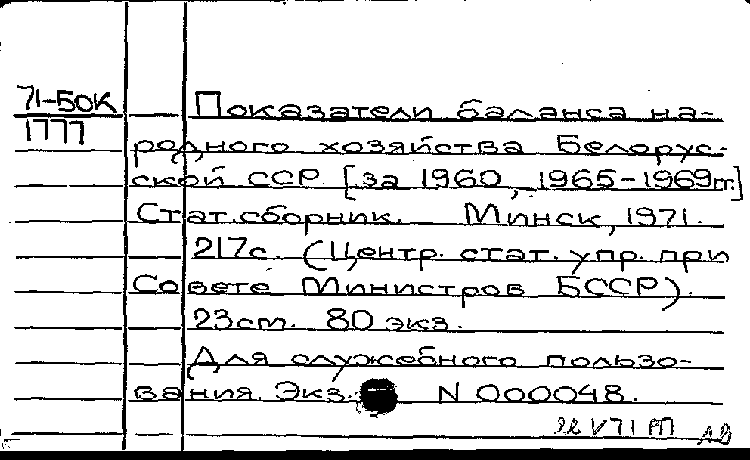 71-БОК
1777
Показатели баланса на-
родного хозяйства Белорус-
ской ССР [за 1960, 1965-1969гг.]
Стат.сборник. Минск, 1971.
217с. (Центр. стат. упр. при
Совете Министров БССР).
23см. 80 экз.
Для служебного пользо-
вания. Экз. N 000048.
V 71